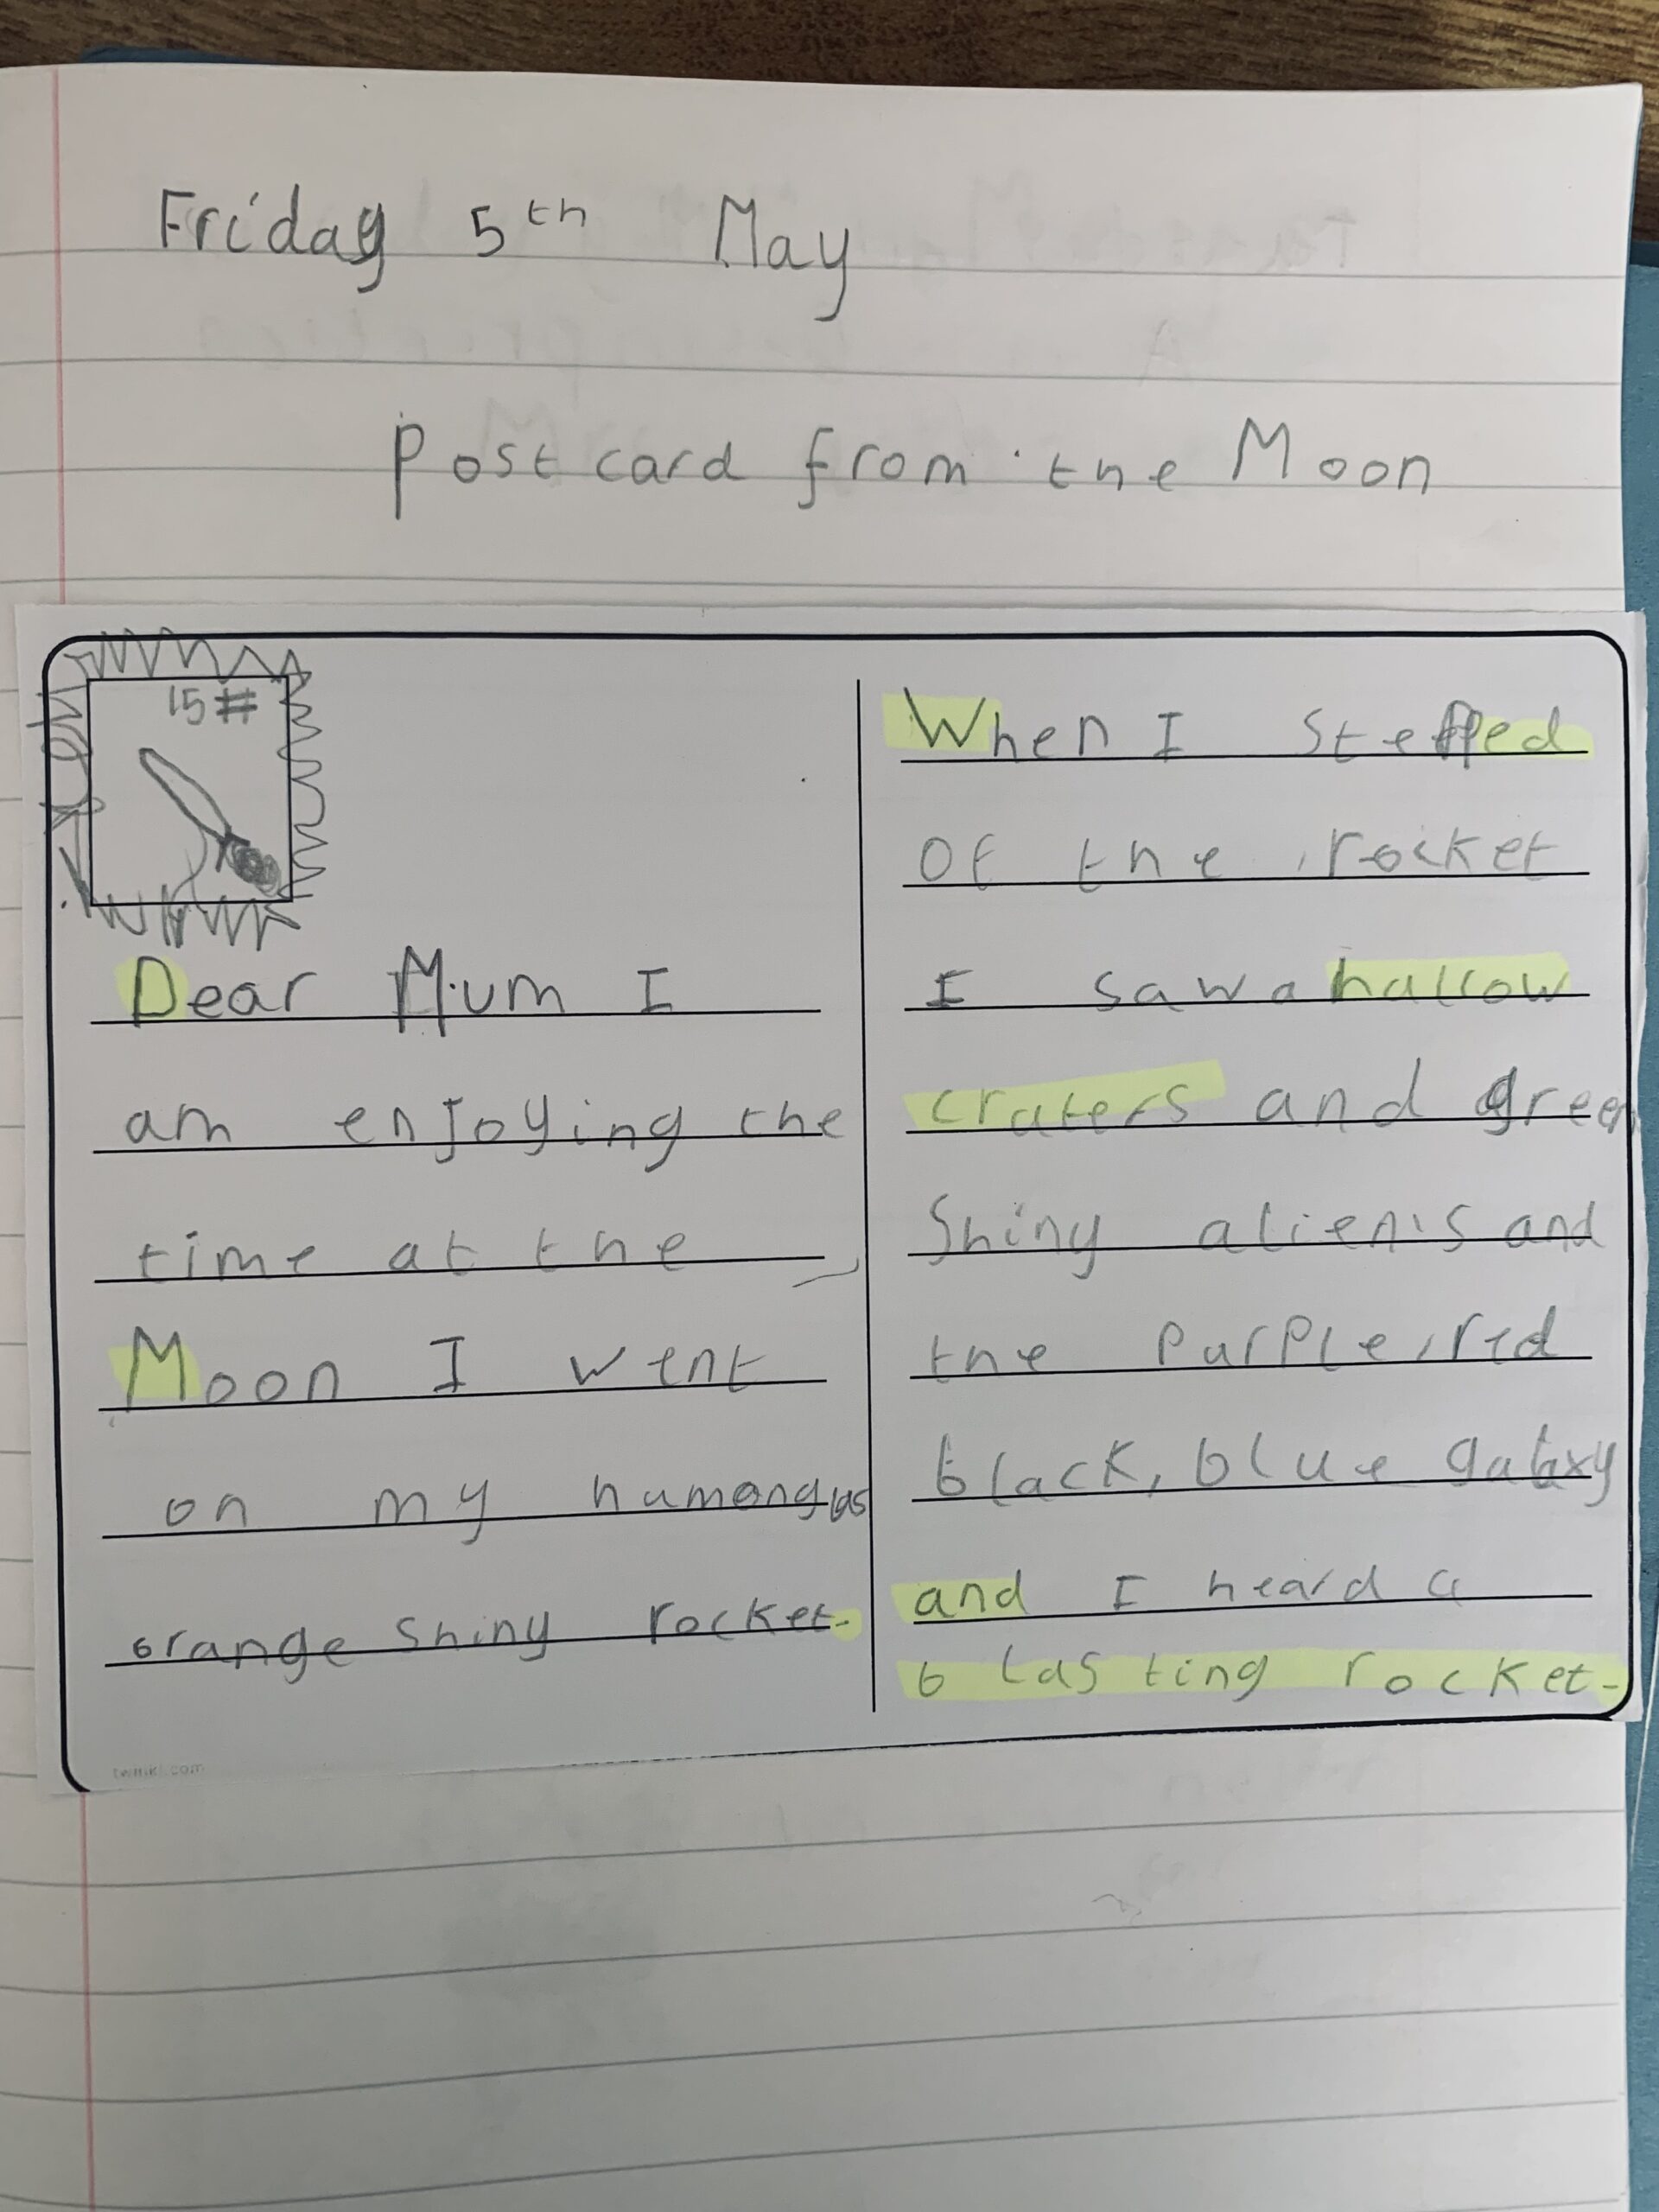 Friday 5th May
Postcard from the Moon
15#
Dear Mum I
am enjoying the
time at the
Moon I went
on my humongus
orange shiny rocket.
When I stepped
of the rocket
I saw a hallow
craters and green
Shiny aliens and
the purple, red
black, blue galaxy
and I heard a
blasting rocket.
twinkl.com